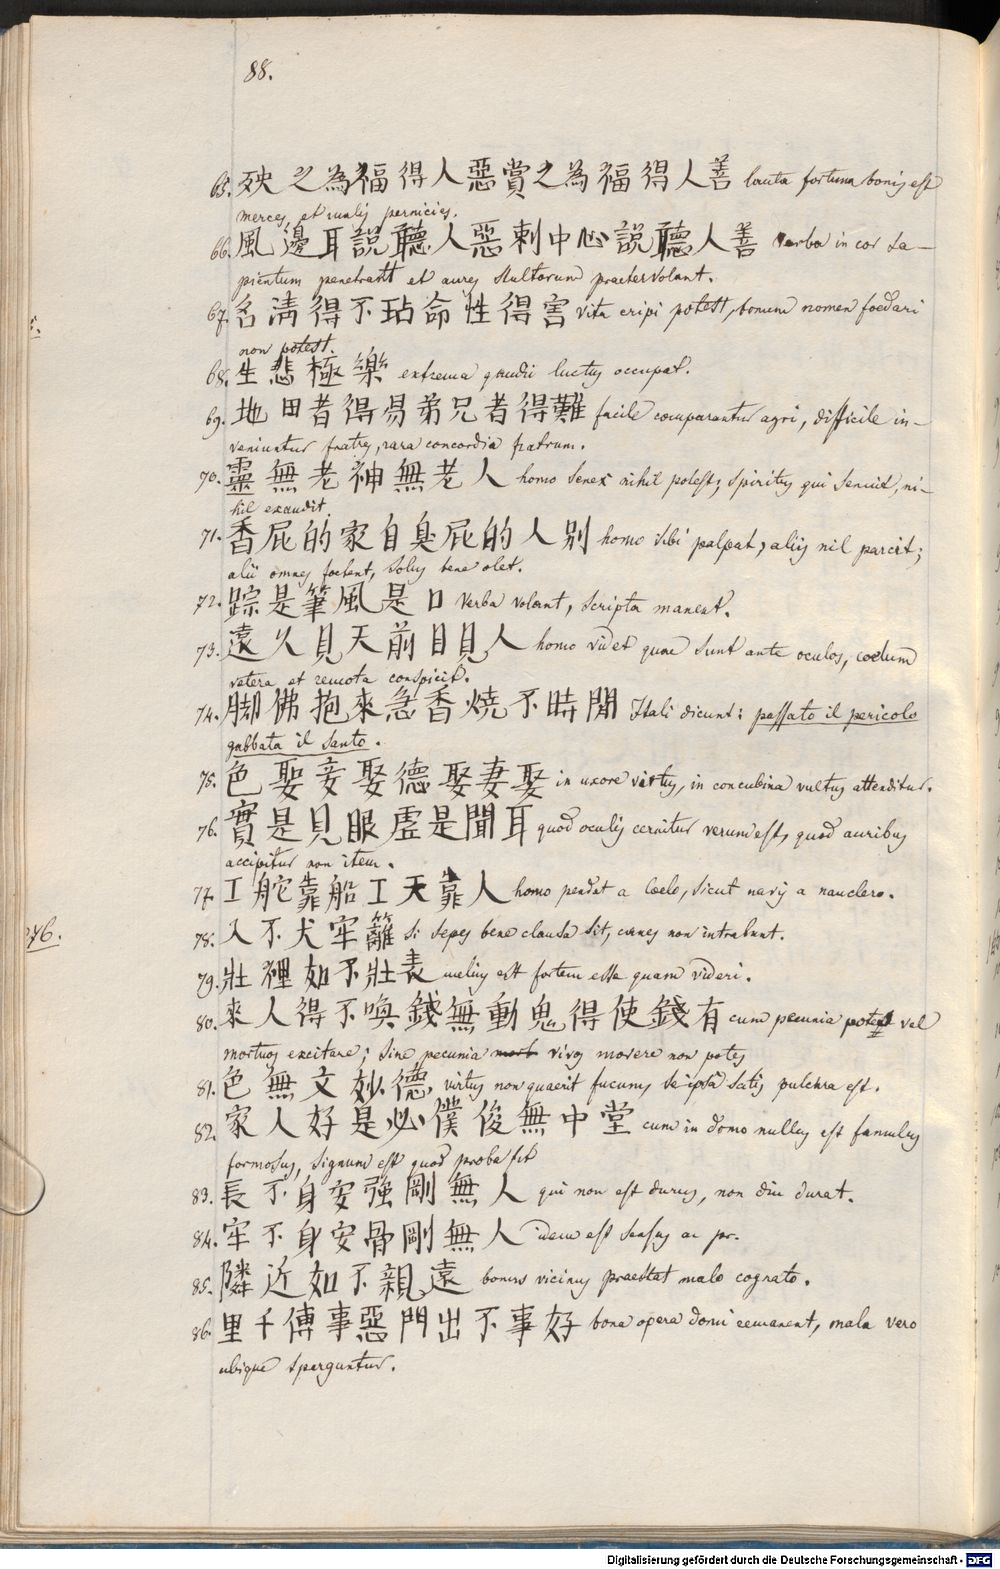 88.
65. 殃之為福得人惡賞之為福得人善 lauta fortuna bonis est
merces, et malis pernicies.
66. 風邊耳說聽人惡刺中心說聽人善 verba in cor sa-
pientum penetrant et aures stultorum praetervolant.
67. 名清得不玷命性得害 vita eripi potest, bonum nomen foedari
non potest.
68. 生悲極樂 extrema gaudii luctus occupat.
69. 地田者得易弟兄者得難 facile comparantur agri, difficile in-
veniuntur fratres, rara concordia fratrum.
70. 靈無老神無老人 homo senex nihil potest, spiritus qui senuit, ni-
hil exaudit.
71. 香屁的家自臭屁的人別 homo sibi palpat, aliis nil parcit;
alii omnes foetent, solus bene olet.
72. 踪是筆風是口 verba volant, scripta manent.
73. 遠久見天前目見人 homo videt quae sunt ante oculos, coelum
vetera et remota conspicit.
74. 脚佛抱來急香燒不時閒 Itali dicunt: passato il pericolo
gabbata il santo.
75. 色娶妾娶德娶妻娶 in uxore virtus, in concubina vultus attenditur.
76. 實是見眼虛是聞耳 quod oculis cernitur verum est, quod auribus
accipitur non item.
77. 工舵靠船工天靠人 homo pendet a coelo, sicut navis a nauclero.
276.
78. 入不犬牢籬 si sepes bene clausa sit, canes non intrabunt.
79. 壯裡如不壯表 melius est fortem esse quam videri.
80. 來人得不喚錢無動鬼得使錢有 cum pecunia potes vel
mortuos excitare; sine pecunia vivos movere non potes
81. 色無文妙德 virtus non quaerit fucum, se ipsa satis pulchra est.
82. 家人好是必僕俊無中堂 cum in domo nullus est famulus
formosus, signum est quod proba sit
83. 長不身安强剛無人 qui non est durus, non diu durat.
84. 牢不身安骨剛無人 idem est sensus ac pr.
85. 隣近如不親遠 bonus vicinus praestat malo cognato.
86. 里千傳事惡門出不事好 bona opera domi remanent, mala vero
ubique sparguntur.
Digitalisierung gefördert durch die Deutsche Forschungsgemeinschaft - DFG